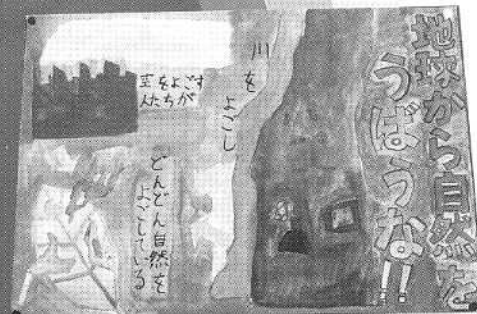 地球から自然を
うばうな!!
川を
よごし
空をよごす
人たちが
どんどん自然を
よごしている